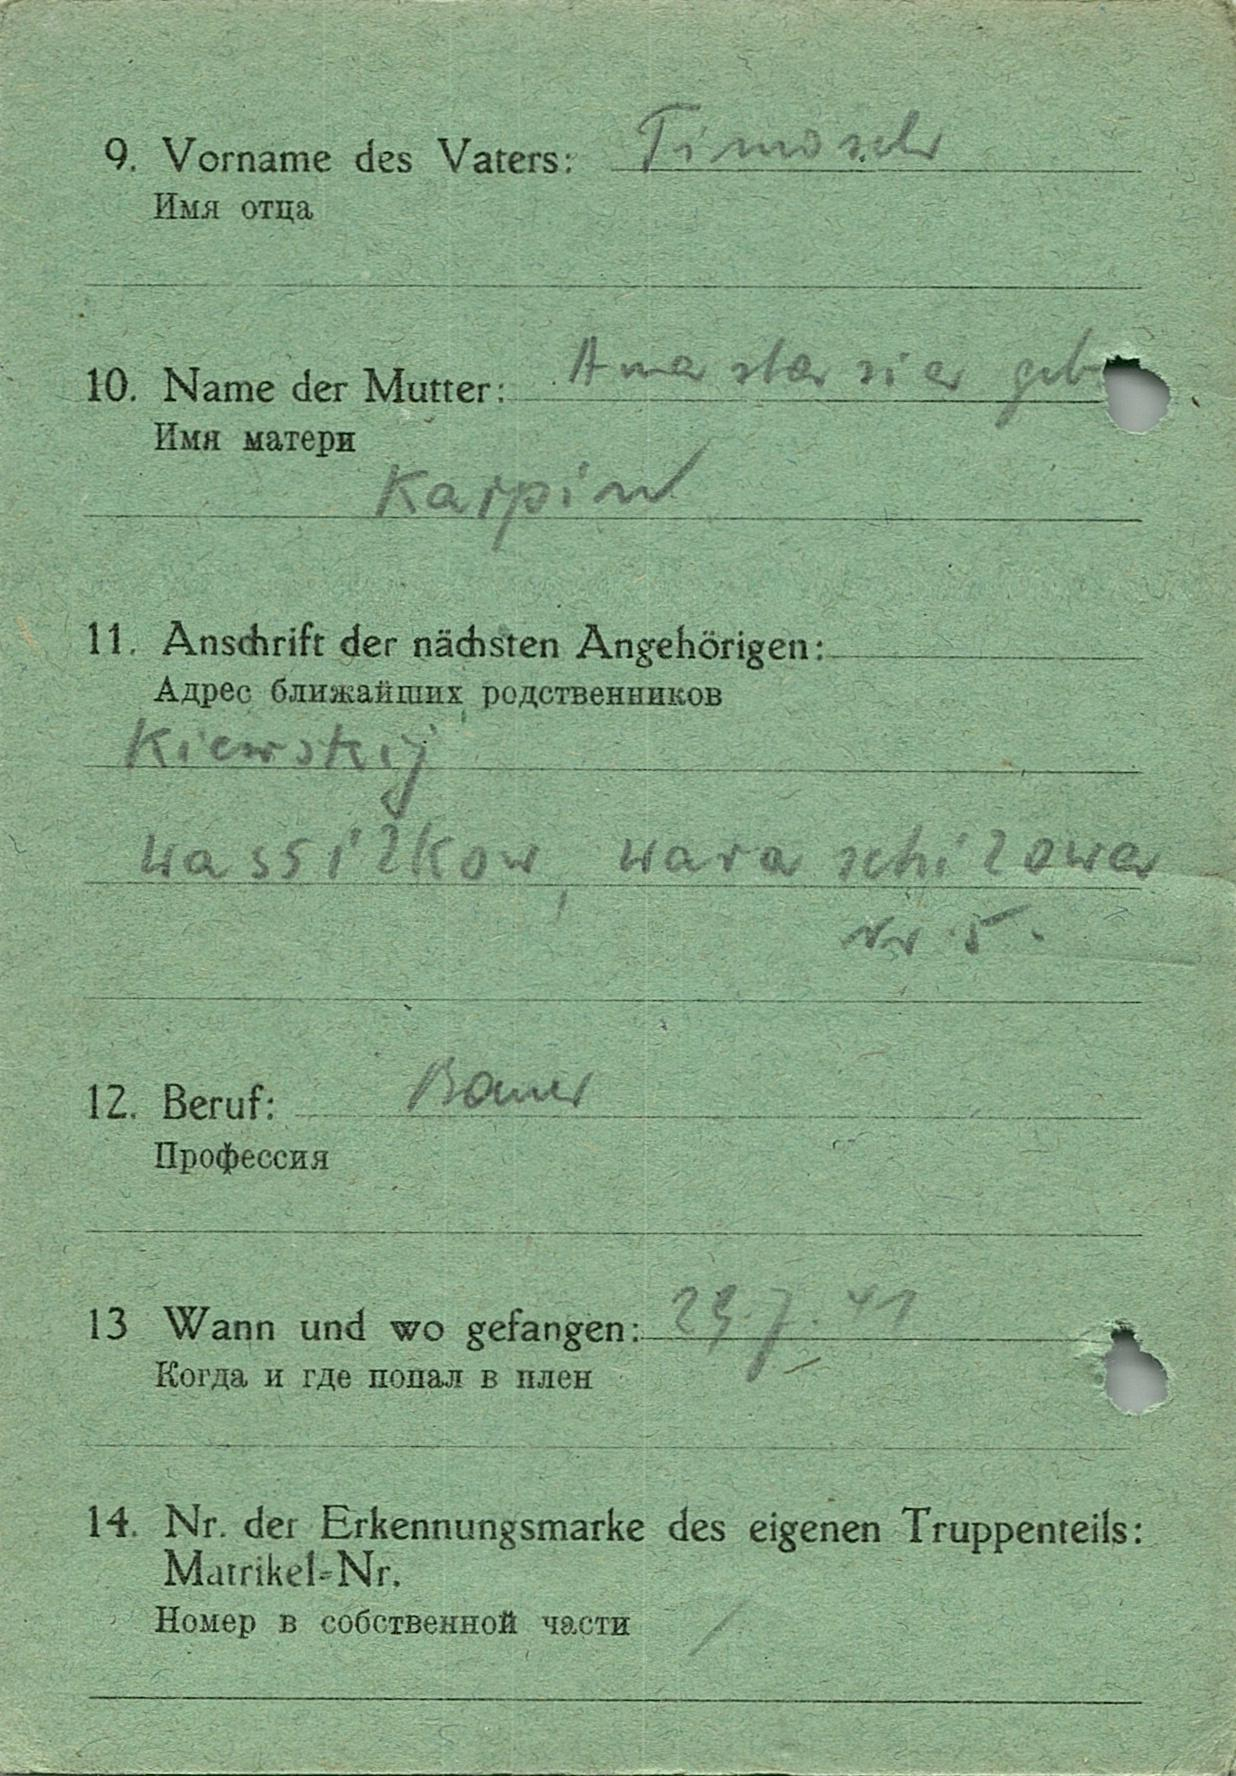 9. Vorname des Vaters: Timosch
Имя отца
10. Name der Mutter: Anastasia geb
Имя матери
Karpin
11. Anschrift der nächsten Angehörigen:
Адрес ближайших родственников
Kiewskij
Wassilkow, Waraschilowa
Nr 5.
12. Beruf: Bauer
Профессия
13 Wann und wo gefangen: 29.7.41
Когда и где попал в плен
14. Nr. der Erkennungsmarke des eigenen Truppenteils:
Matrikel-Nr.
Номер в собственной части /